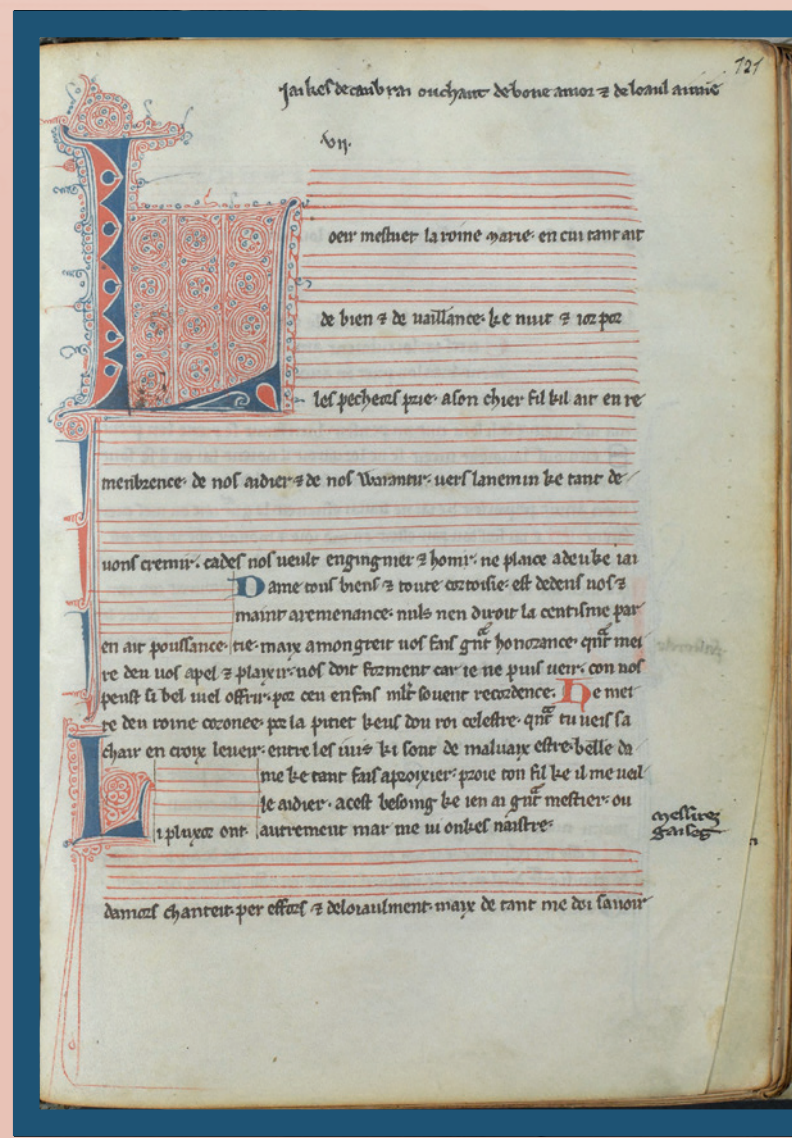 121
Jaikes de canbrai ou chant de bone amor ⁊ de loaul amie
vii.
L
oeir mestuet la roine marie. en cui tant ait
de bien ⁊ de uaillance. ke nuit ⁊ ior por
les pecheors prie. a son chier fil kil ait en re
menbrence. de nos aidier ⁊ de nos warantir. uers lanemin ke tant de
uons cremir. cades nos ueult engingnier ⁊ honir. ne plaice a deu ke iai
en ait poussance.
Dame tous biens ⁊ toute cortoisie. est dedens uos ⁊
maint a remenance. nuls nen diroit la centisme par
tie. maix a mon greit uos fais gnt honorance. qnt mei
re deu uos apel ⁊ plaixir. uos doit forment car ie ne puis ueir. con uos
peust si bel iuel offrir. por ceu en fais souent recordence. He mei
re deu roine coronee. por la pitiet keus dou roi celestre. qnt tu ueis sa
chair en croix leueir. entre les iuis ki sont de maluaix estre. belle da
me ke tant fais a proixier. proie ton fil ke il me ueil
le aidier. a cest besoing ke ien ai gnt mestier. ou
autrement mar me ui onkes naistre.
messires
gaises
L
i pluxor ont
damors chanteit. per effors ⁊ deloiaulment. maix de tant me doi sauoir